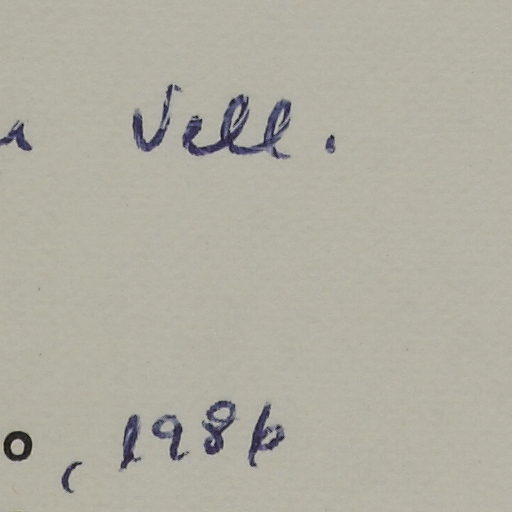 a Vell.
o, 1986